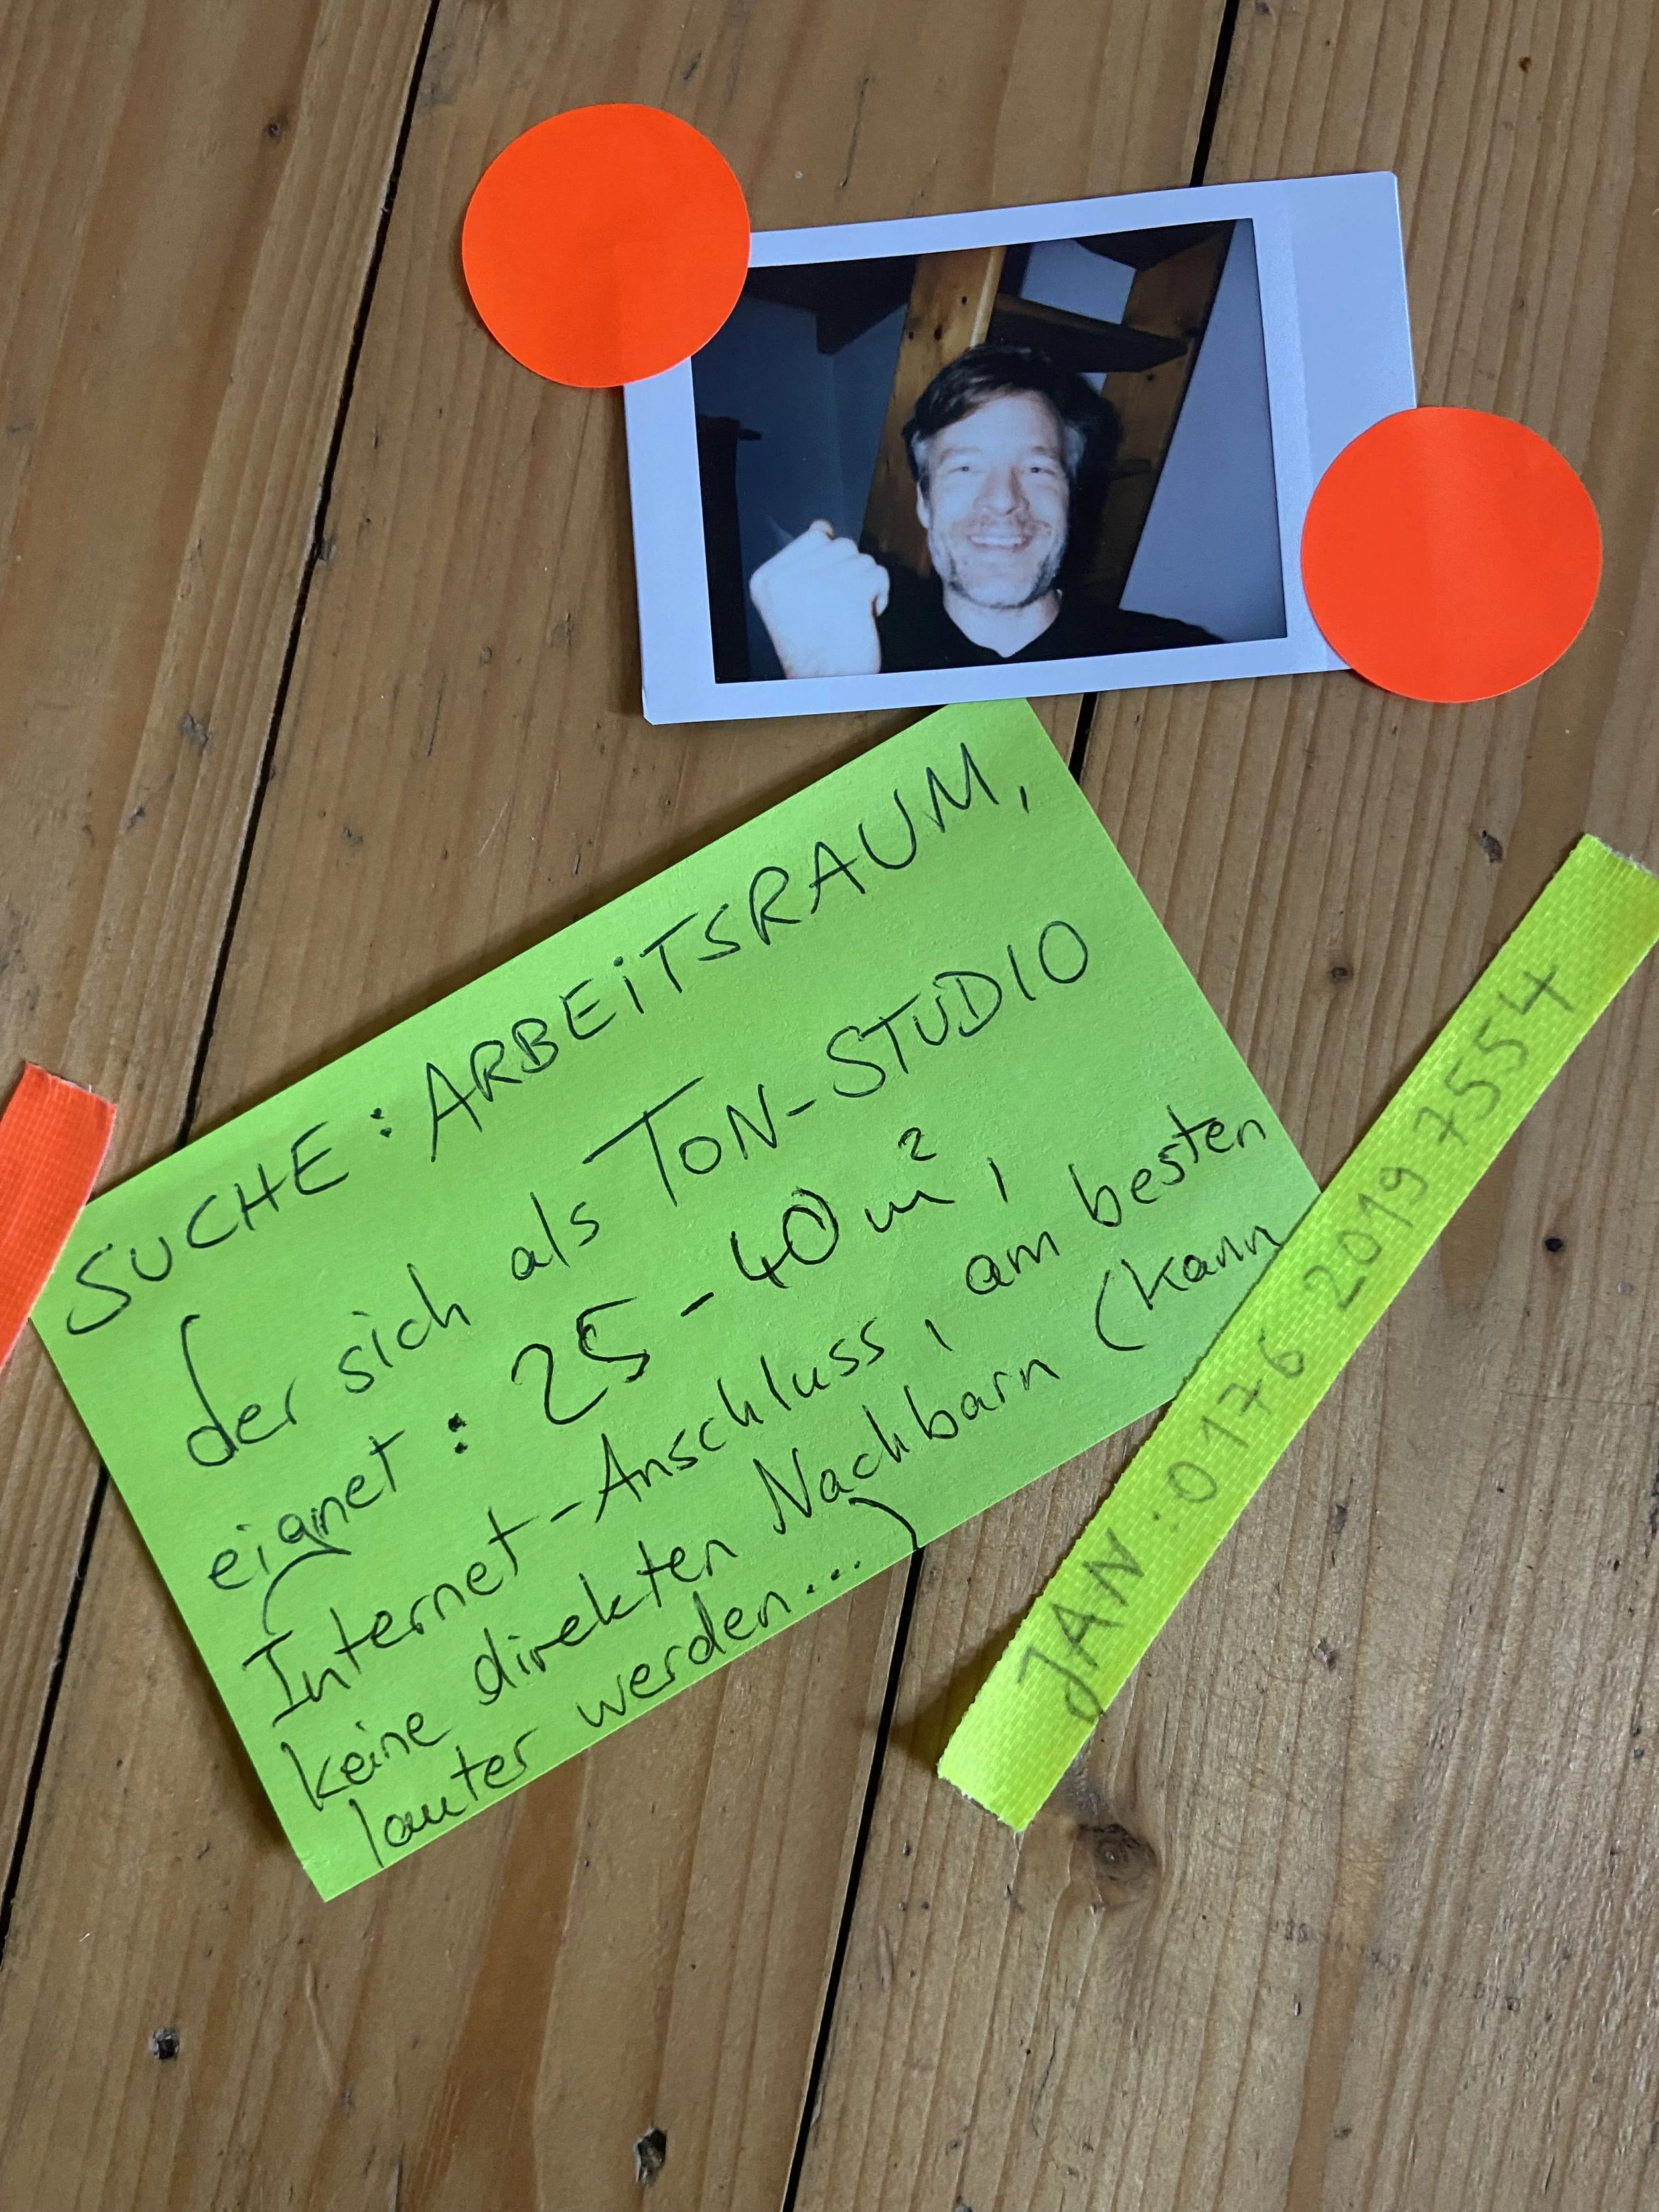 SUCHE: ARBEITSRAUM,
der sich als TON-STUDIO
eignet: 25-40m²,
Internet-Anschluss, am besten
keine direkten Nachbarn (kann
lauter werden...)
JAN: 0176 2019 7554